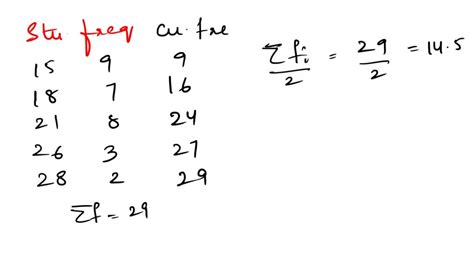 Stu freq Cu. fre
15 9 9
18 7 16
21 8 24
26 3 27
28 2 29
Σf = 29
Σfi/2 = 29/2 = 14.5